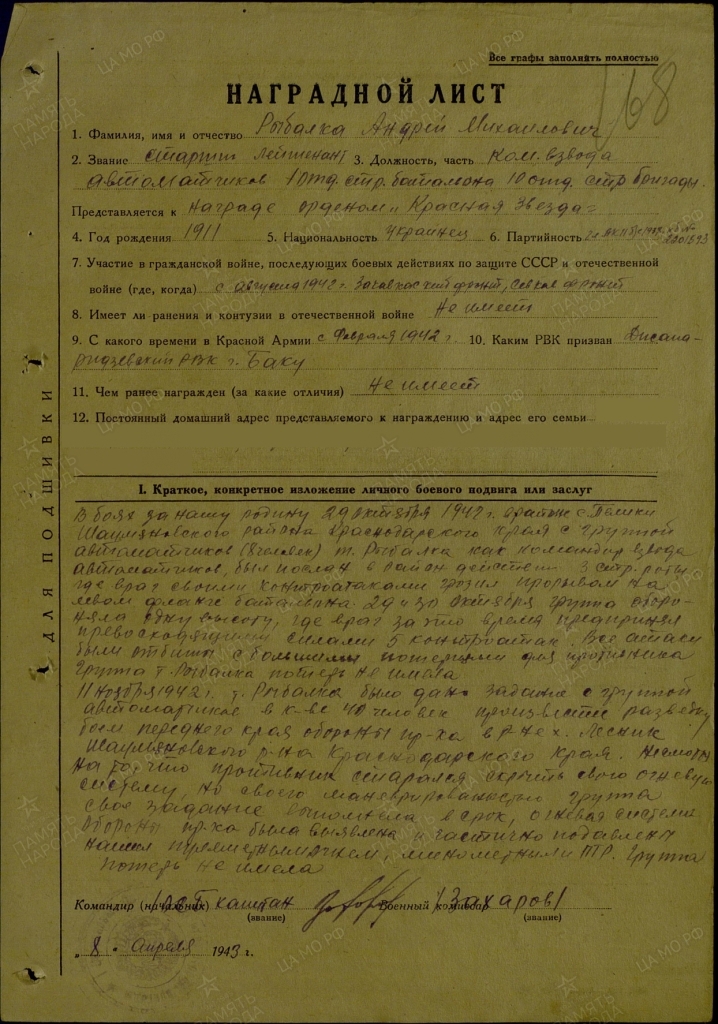 Все графы заполнять полностью
168
НАГРАДНОЙ ЛИСТ
1. Фамилия, имя и отчество Рыбалка Андрей Михайлович
2. Звание старший лейтенант 3. Должность, часть Ком. взвода
автоматчиков 1 отд. стр. батальона 10 отд. стр бригады.
Представляется к награде орденом „Красная Звезда"
4. Год рождения 1911 5. Национальность Украинец 6. Партийность
7. Участие в гражданской войне, последующих боевых действиях по защите СССР и отечественной
войне (где, когда) с августа 1942 г. Закавказский фронт,
8. Имеет ли ранения и контузии в отечественной войне Не имеет
9. С какого времени в Красной Армии с Февраля 1942 г. 10. Каким РВК призван
РВК г. Баку
11. Чем ранее награжден (за какие отличия) Не имеет
12. Постоянный домашний адрес представляемого к награждению и адрес его семьи
ДЛЯ ПОДШИВКИ
I. Краткое, конкретное изложение личного боевого подвига или заслуг
В боях за нашу родину 29 октября 1942 г. в районе с.
Шаумяновского района Краснодарского края с группой
автоматчиков (8 человек) т. Рыбалка как командир взвода
автоматчиков, был послан в район действий 3 стр. роты
где враг своими контратаками грозил прорывом на
левом фланге батальона. 29 и 30 октября группа оборо-
няла одну высоту, где враг за это время предпринял
превосходящими силами 5 контратак. Все атаки
были отбиты с большими потерями для противника
Группа т. Рыбалка потерь не имела.
11 ноября 1942 г. т. Рыбалка было дано задание с группой
автоматчиков в к-ве 40 человек произвести разведку
боем переднего края обороны пр-ка в р-не х. Лесник
Шаумяновского р-на Краснодарского Края. Несмотря
на то, что противник старался скрыть свою огневую
систему, но своего маневрированностью группа
свое задание выполнела в срок, огневая система
обороны пр-ка была выявлена и частично подавлена
нашим пулеметным огнем, минометным и ПТР. Группа
потерь не имела
Командир (начальник) капитан Военный комиссар /Захаров/
(звание) (звание)
„8" апреля 1943 г.
ЦА МО РФ
ПАМЯТЬ НАРОДА